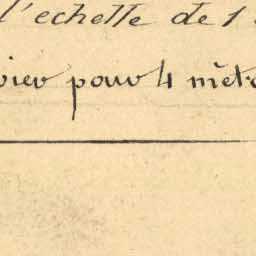 l'echelle de 1
vier pour 4 mètr